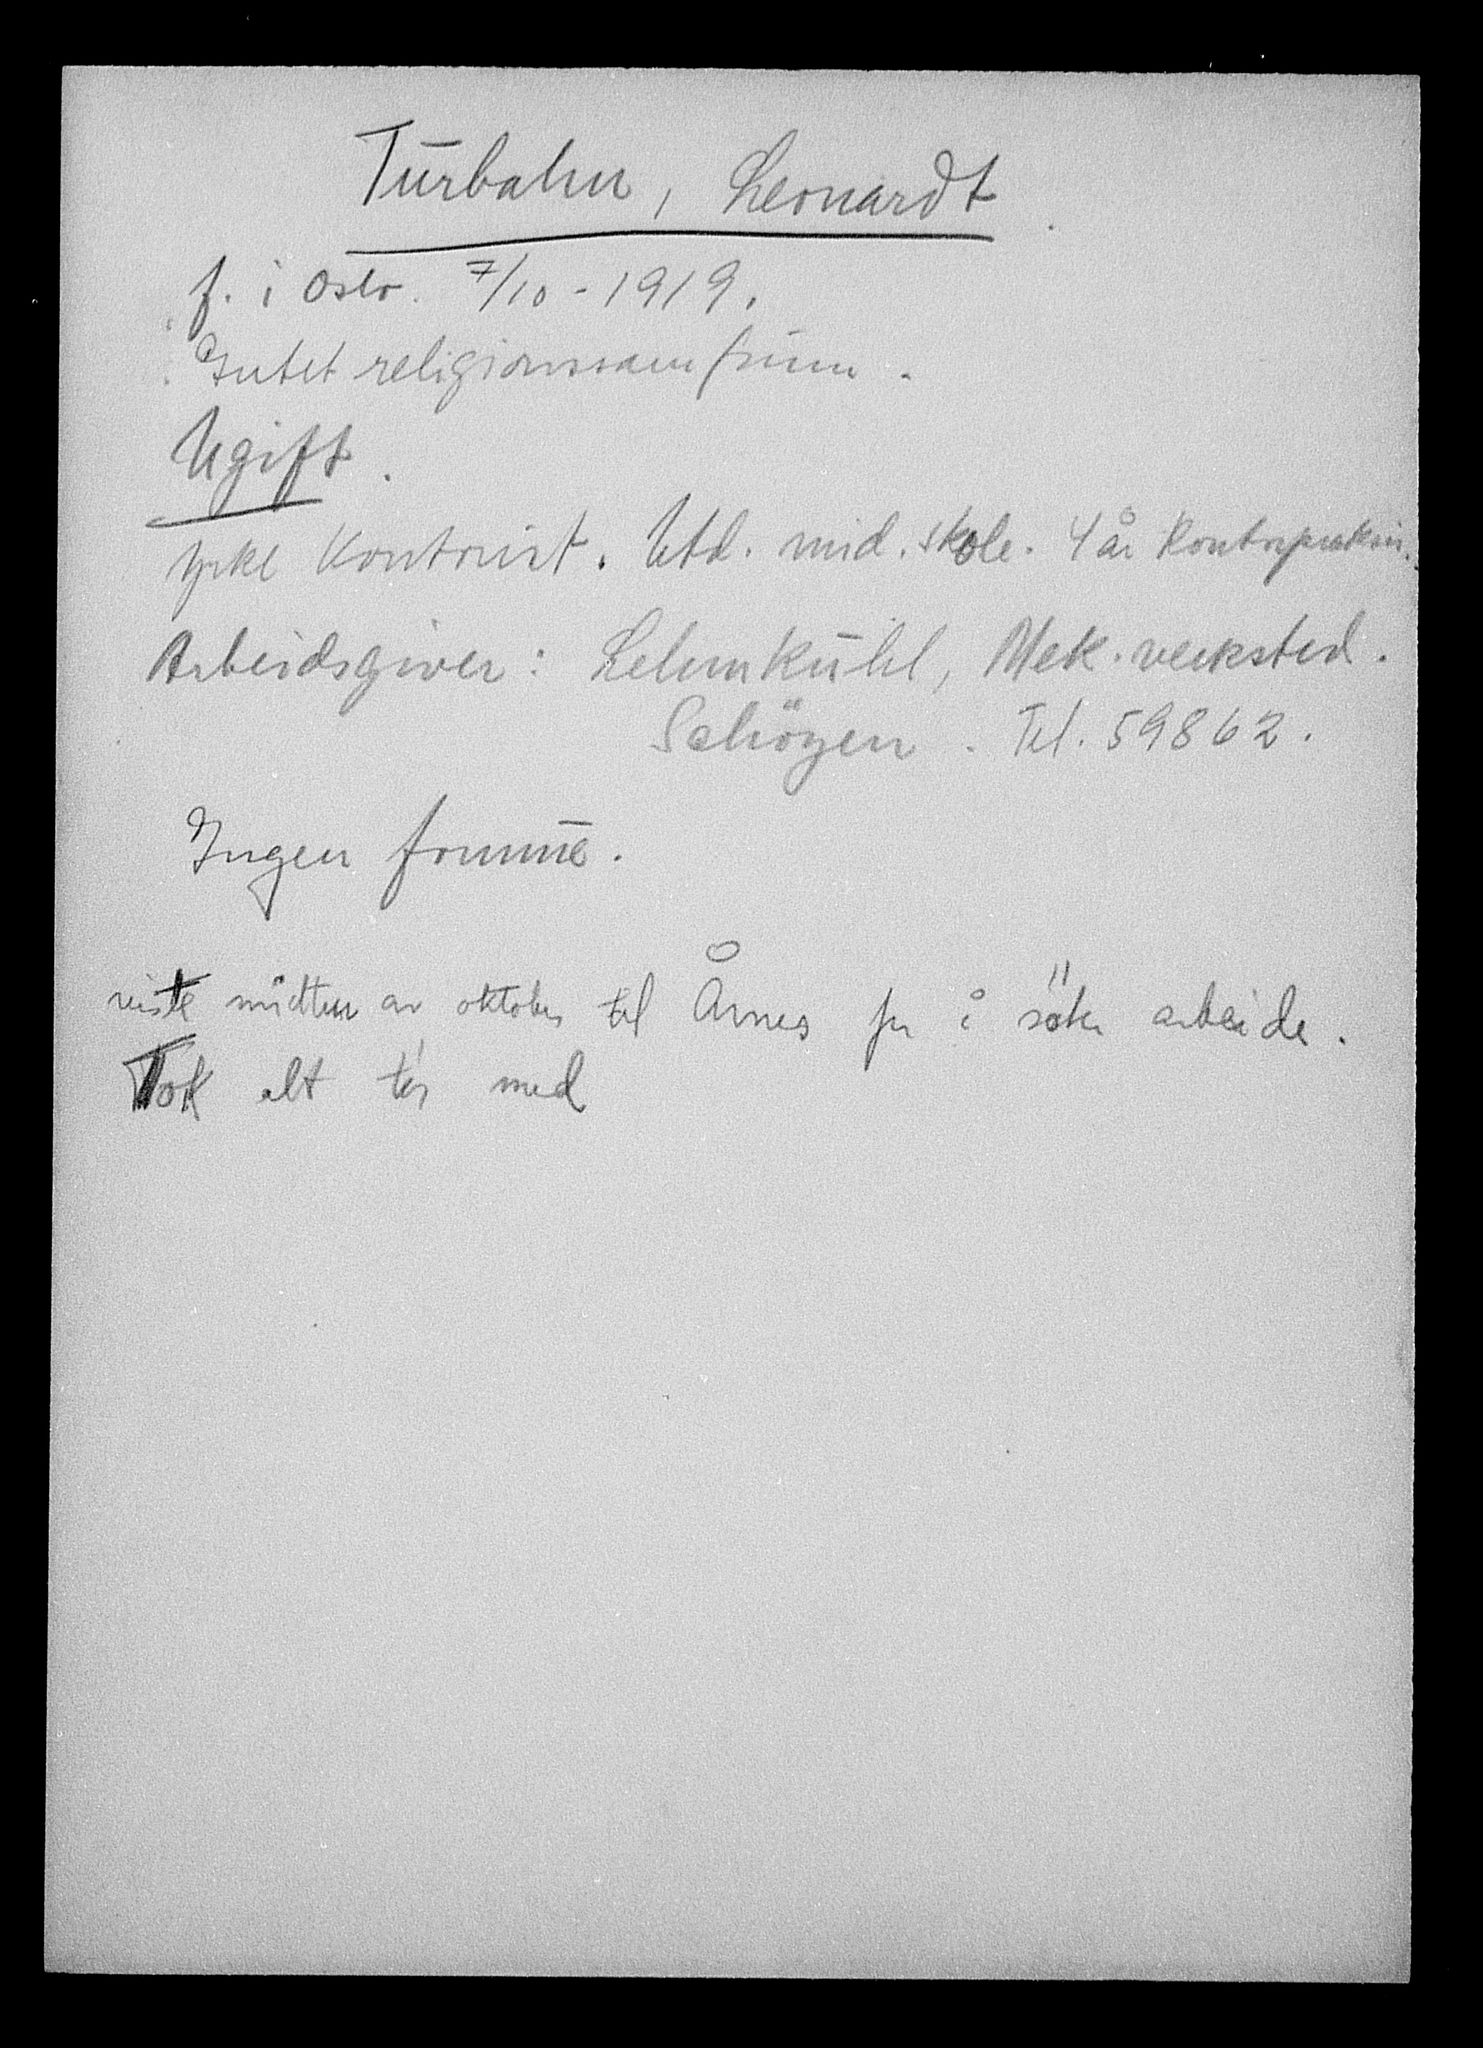 Turbahn, Leonardt
f. i Oslo. 7/10 - 1919.
Intet religionssamfunn.
Ugift.
Yrke Kontorist. Utd. mid. skole. 4 år
Arbeidsgiver: Lehmkuhl, Mek. verksted.
Schöyen. Tel. 59862.
Ingen formue.
reiste midten av oktober til Årnes for å söke arbeide.
Tok alt töi med